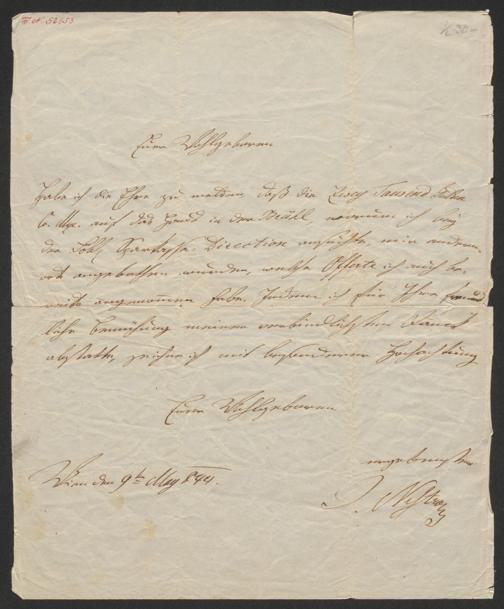 I.N. 52653
Euer Wohlgeboren
Habe ich die Ehre zu melden daß die Zwey Tausend Gulden
C. Mze. auf das Haus in der warum ich bey
der Löbl. Sparkassa-Direction ansuchte, mir andern
ort angebothen wurden, welche Offerte ich auch be
reits angenommen habe. Indem ich für Ihre freund
liche Bemühung meinen verbindlichsten Dank
abstatte, zeichne ich mit besonderer Hochachtung
Euer Wohlgeboren
ergebenster
Wien den 9t May 844.
J. Nestroy